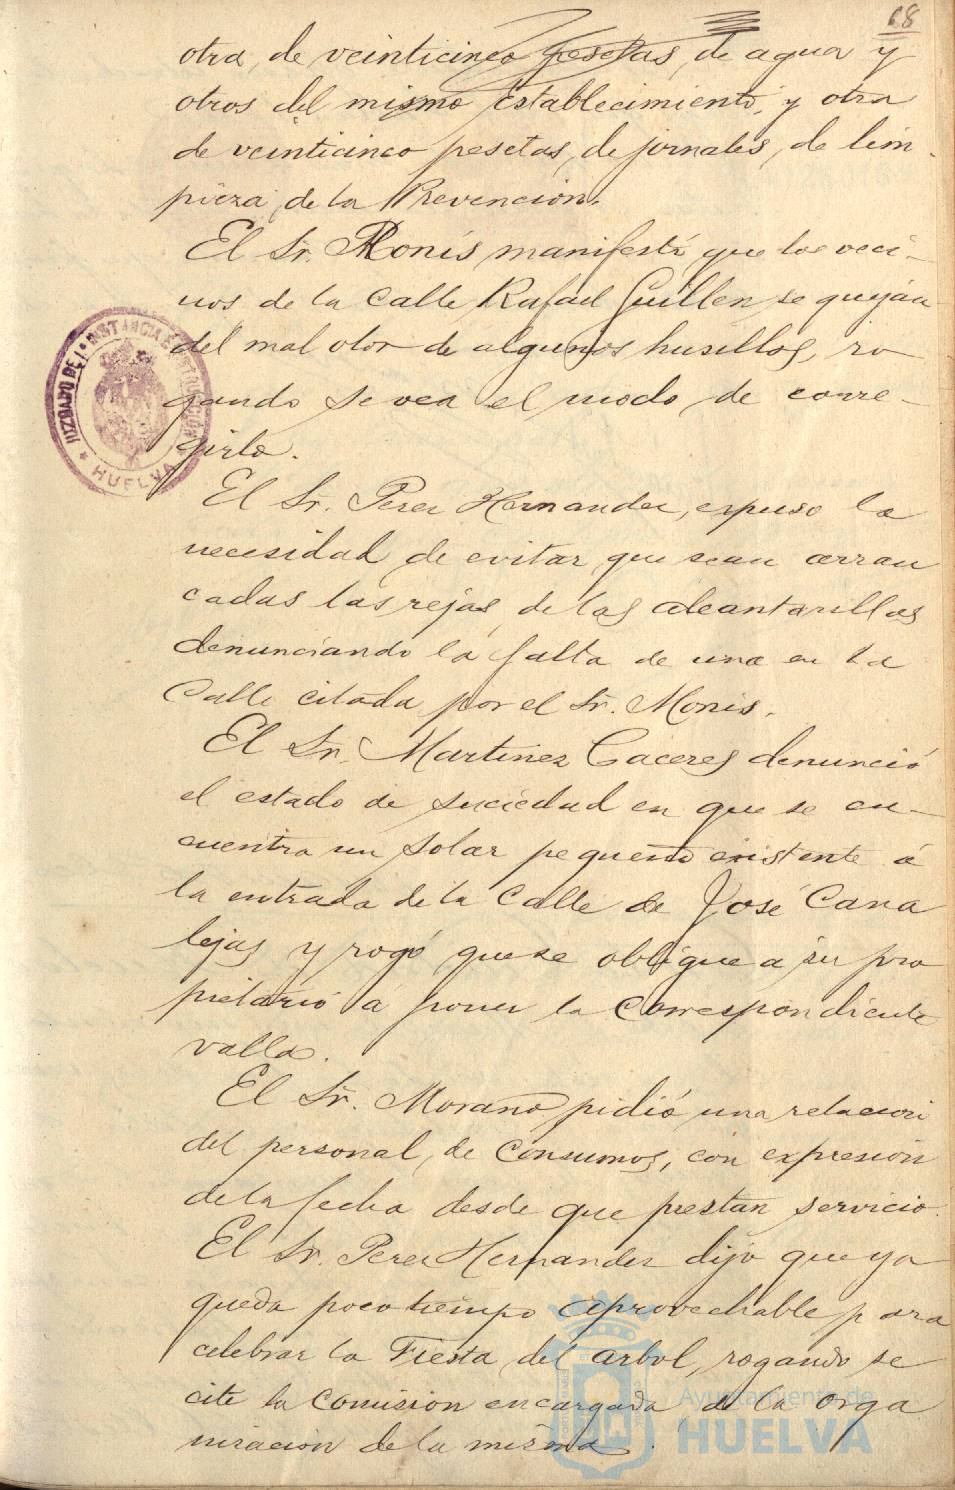 68
otra, de veinticinco pesetas, de agua y
otros del mismo establecimiento, y otra
de veinticinco pesetas, de jornales, de lim-
pieza, de la Prevencion.
El Sr. Monis manifestó que los veci-
nos de la calle Rafael Guillen se quejan
del mal olor de algunos husillos, ro-
gando se vea el modo de corre-
girlo.
El Sr. Perez Hernandez, expuso la
necesidad de evitar que sean arran
cadas las rejas de las alcantarillas
denunciando la falta de una en la
Calle citada por el Sr. Monis.
El Sr. Martinez Caceres denunció
el estado de suciedad en que se en-
cuentra un solar pequeño existente á
la entrada de la Calle de José Cana
lejas y rogó que se obligue a su pro
pietario á poner la correspondiente
valla.
El Sr. Morano pidió una relacion
del personal, de Consumos, con expresion
de la fecha desde que prestan servicio.
El Sr. Perez Hernandez dijo que ya
queda poco tiempo aprovechable para
celebrar la Fiesta del arbol, rogando se
cite la Comision encargada de la orga
nizacion de la misma.
JUZGADO DE 1ª INSTANCIA E INSTRUCCIÓN
* HUELVA *
Ayuntamiento de
HUELVA